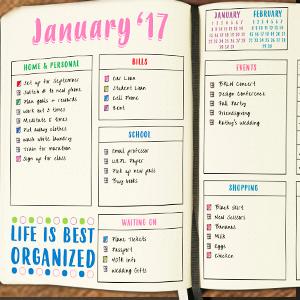 January '17
HOME & PERSONAL
Set up for September
Switch to new phone
Plan goals + rewards
Work out 3 times
Meditate 5 times
Put away clothes
Wash white laundry
Train for marathon
Sign up for class
LIFE IS BEST
ORGANIZED
BILLS
Car Loan
Student Loan
Cell Phone
Rent
SCHOOL
Email professor
Paper
Pick up new pass
Buy books
WAITING ON
Plane Tickets
Passport
Info
Wedding Gifts
JANUARY
FEBRUARY
EVENTS
Concert
Design Conference
Fall Party
Friendsgiving
Kathy's wedding
SHOPPING
Black Skirt
New Scissors
Bananas
Milk
Eggs
Chicken